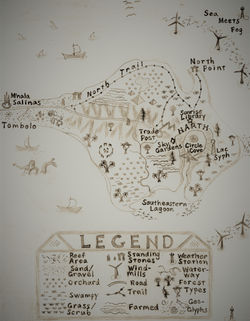 Sea
Meets
Fog
North Trail
North
Point
Mnala
Salinas
Tombolo
Sunrise
Library
Trade
Post
NARTH
Sky
Gardens
Circle
Cove
Lac
Syph
Southeastern
Lagoon
LEGEND
Reef
Area
Standing
Stones
Weather
Station
Sand/
Gravel
Wind-
mills
Water-
way
Orchard
Road
Forest
Types
Swampy
Trail
Grass/
Scrub
Farmed
Geo-
Glyphs